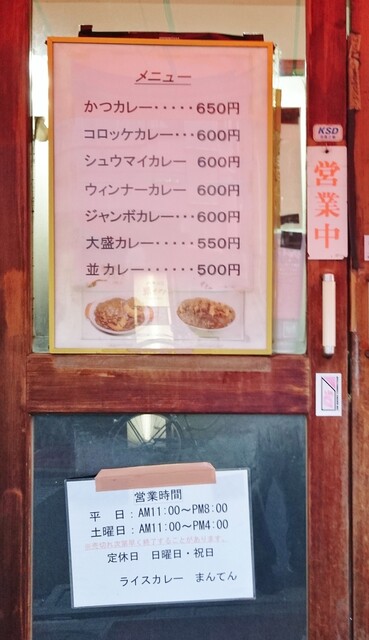 メニュー
かつカレー・・・・・650円
コロッケカレー・・・600円
シュウマイカレー 600円
ウィンナーカレー 600円
ジャンボカレー・・・600円
大盛カレー・・・・・550円
並カレー・・・・・・500円
KSD
営業中
営業時間
平 日：AM11:00～PM8:00
土曜日：AM11:00～PM4:00
売切れ次第早く終了することがあります。
定休日 日曜日・祝日
ライスカレー まんてん